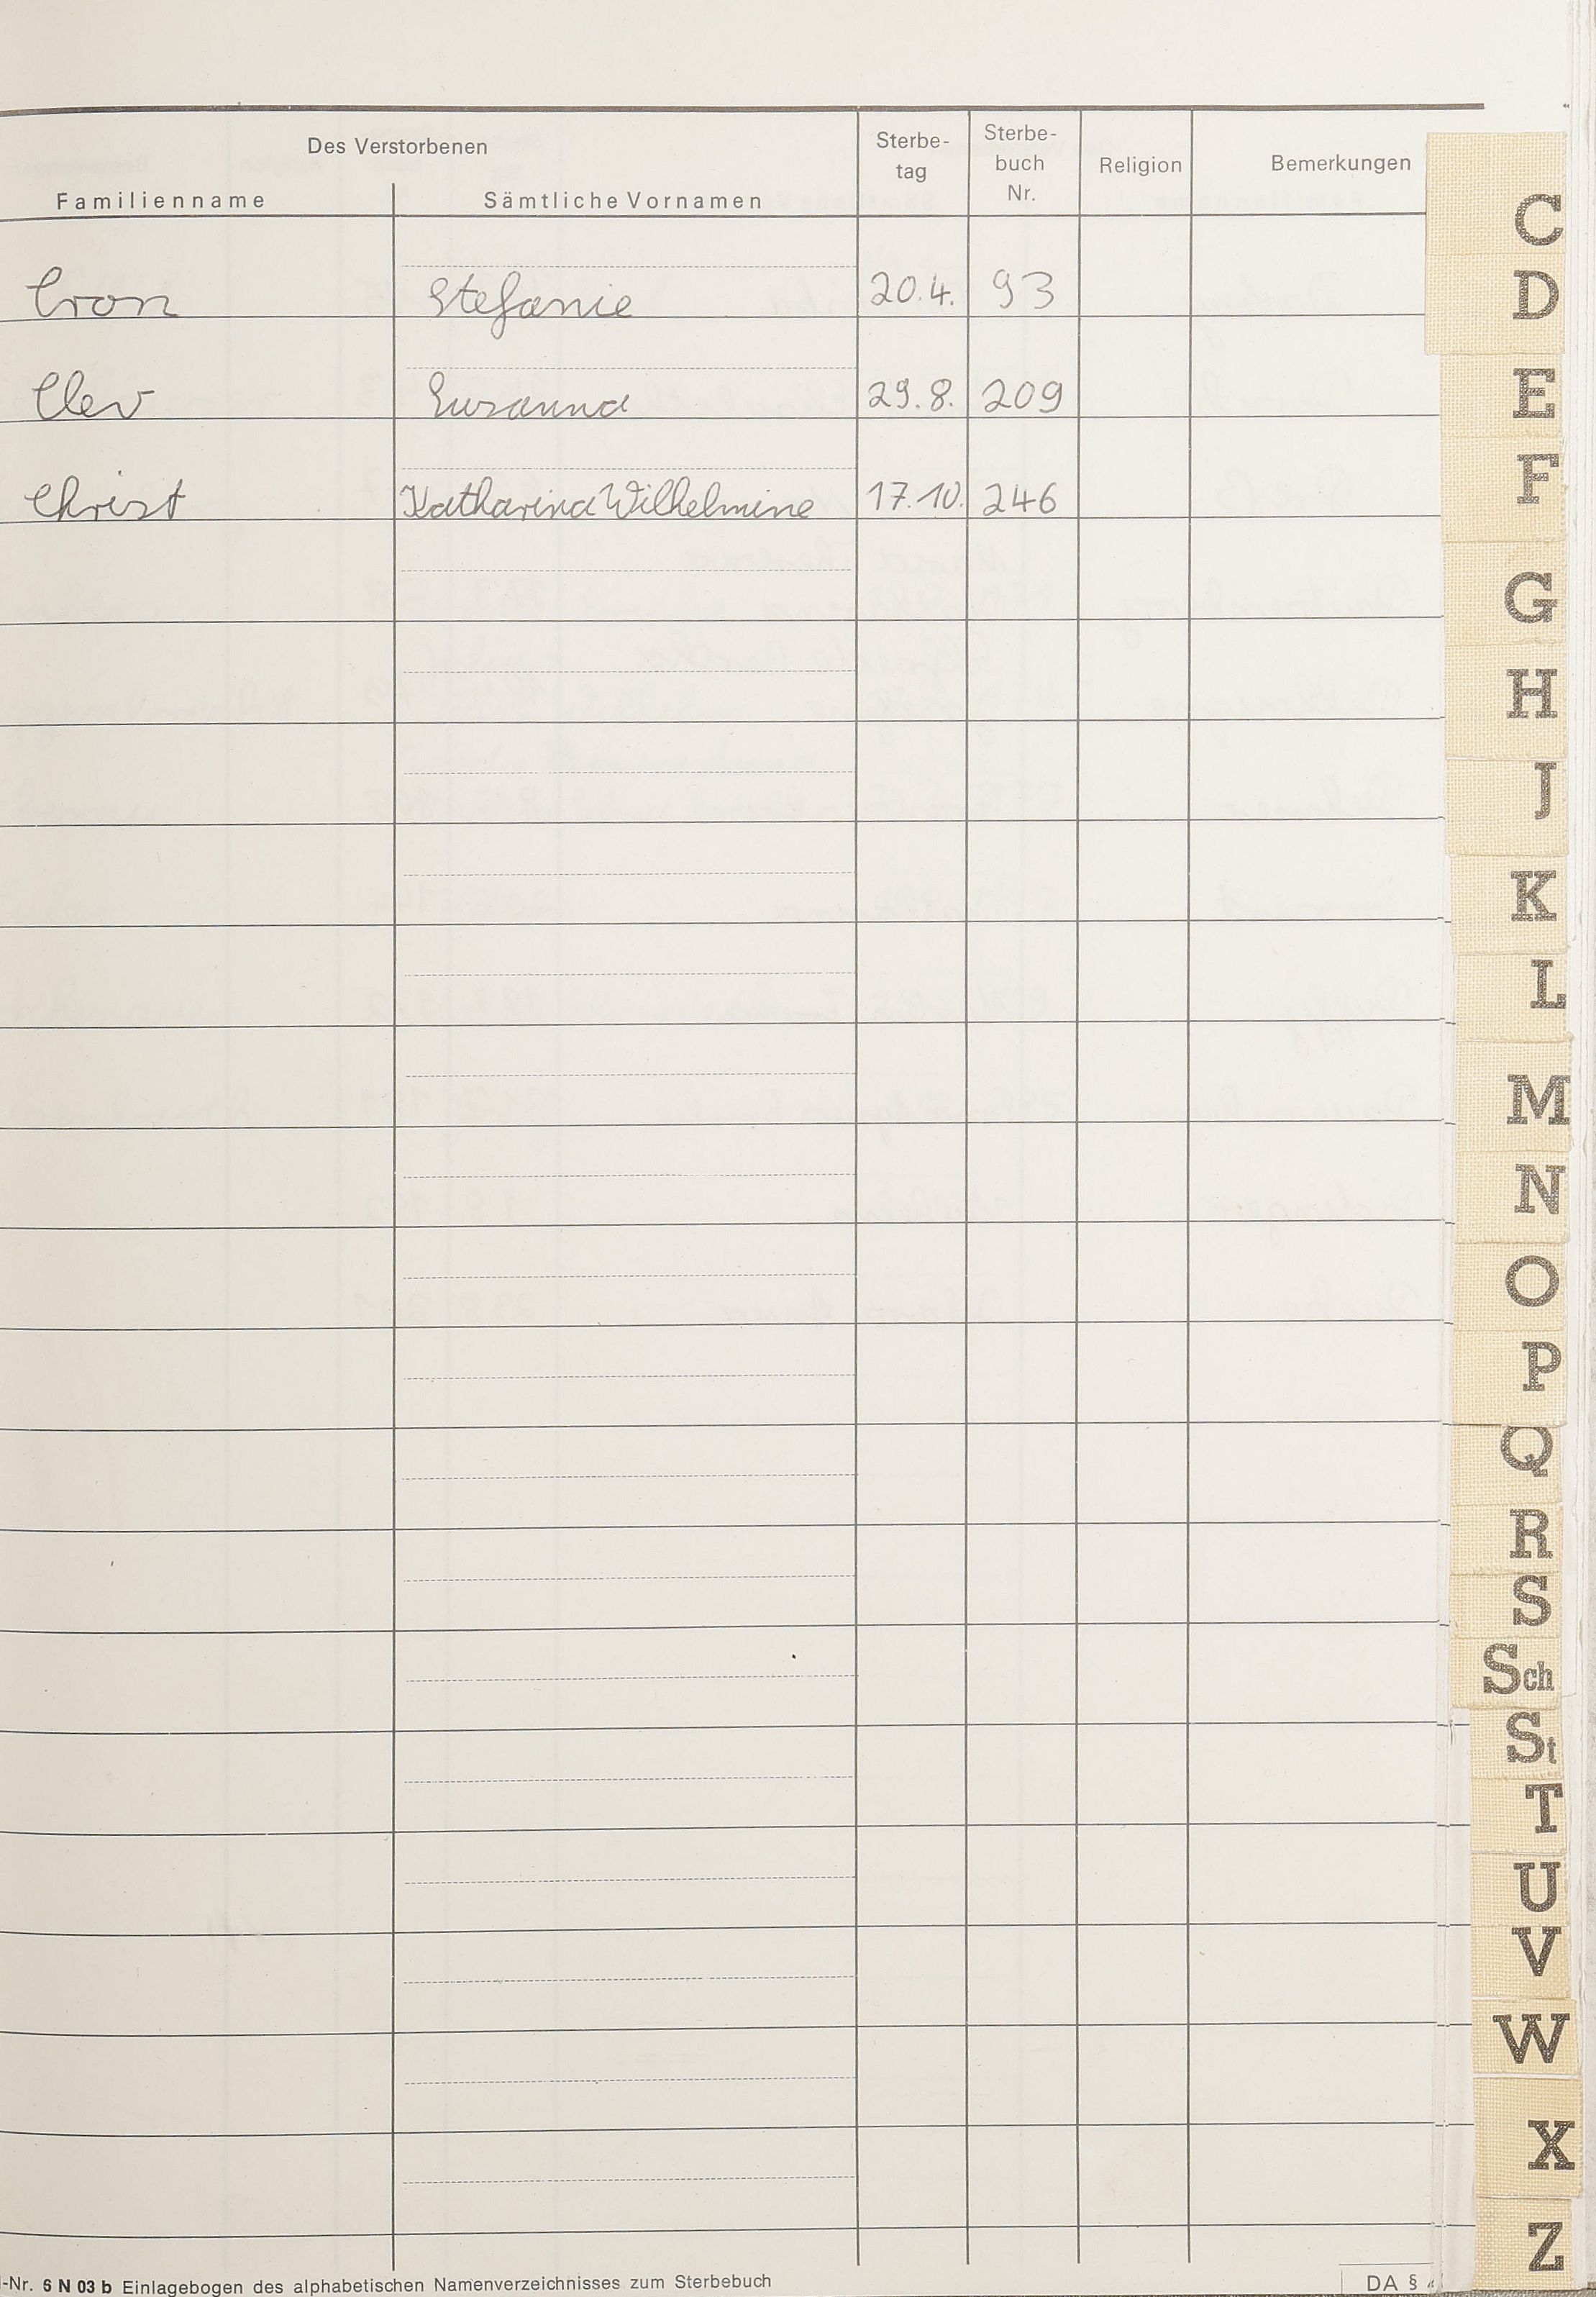 Des Verstorbenen
Familienname Sämtliche Vornamen Sterbe-tag Sterbe-buch Nr. Religion Bemerkungen
Cron Stefanie 20.4. 93
Clev Susanna 29.8. 209
Christ Katharina Wilhelmine 17.10. 246
C
D
E
F
G
H
J
K
L
M
N
O
P
Q
R
S
Sch
St
T
U
V
W
X
Z
-Nr. 6 N 03 b Einlagebogen des alphabetischen Namenverzeichnisses zum Sterbebuch DA §